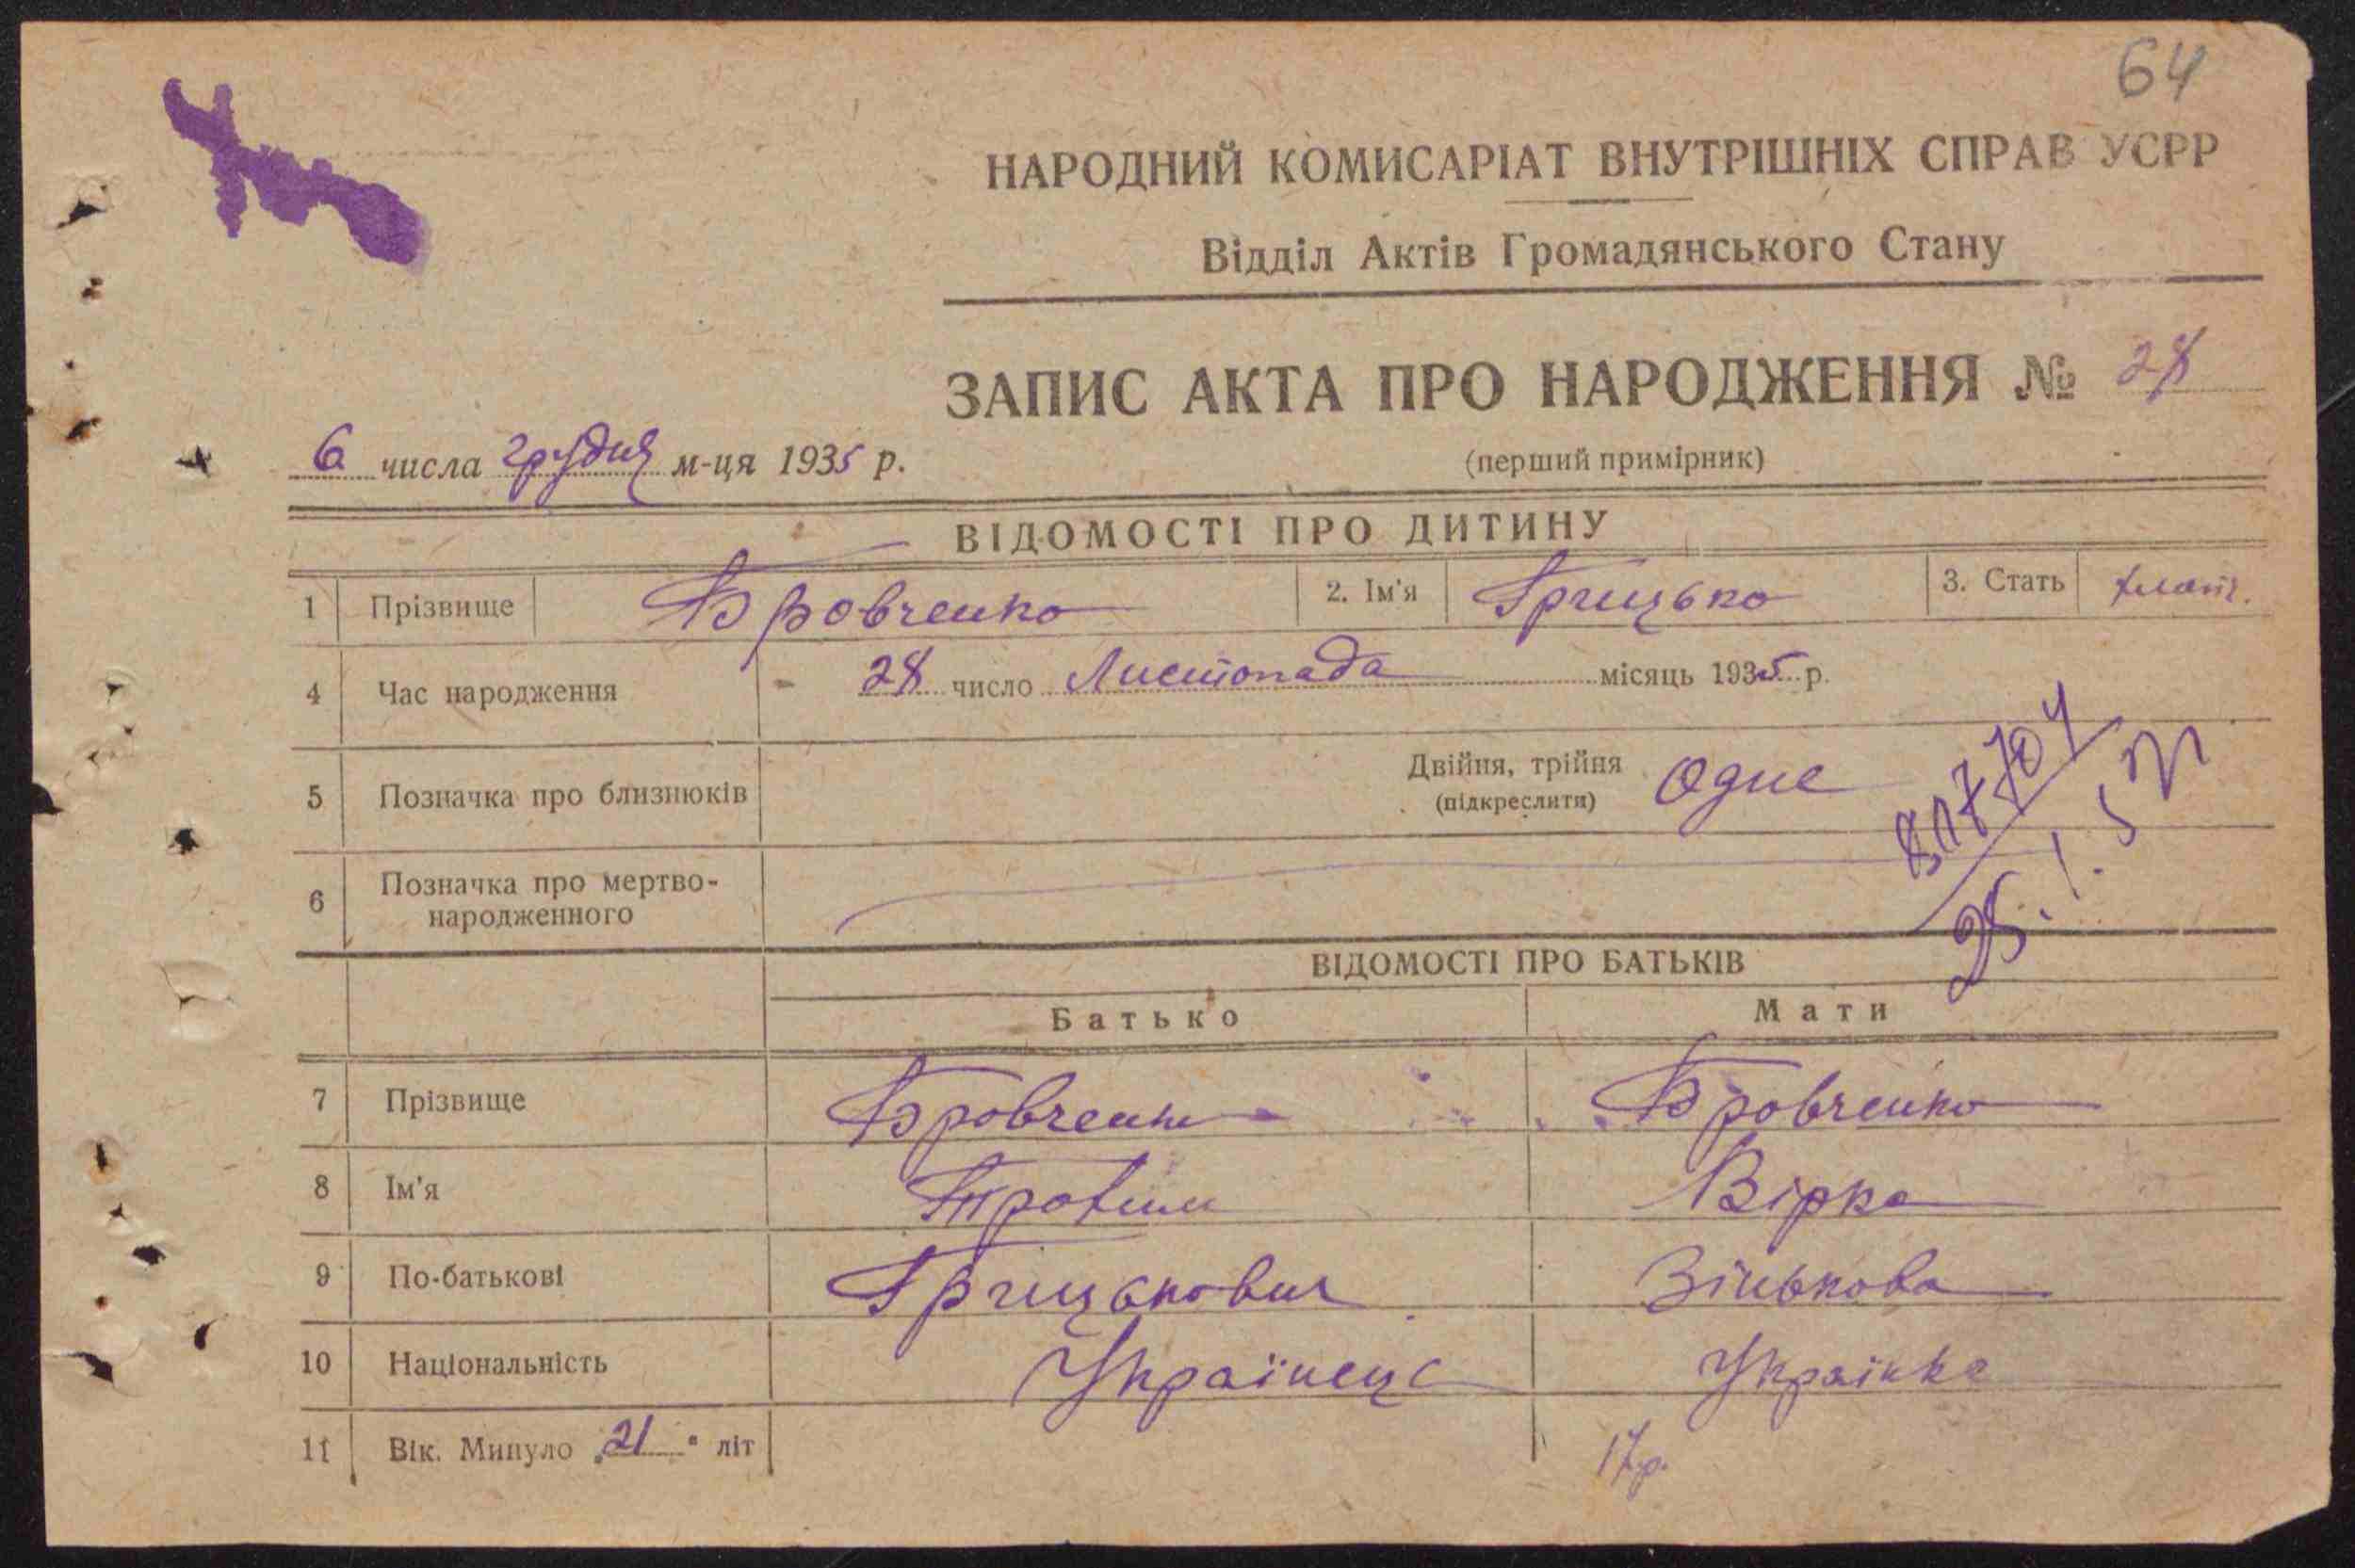 64
НАРОДНИЙ КОМИСАРІАТ ВНУТРІШНІХ СПРАВ УСРР
Відділ Актів Громадянського Стану
ЗАПИС АКТА ПРО НАРОДЖЕННЯ № 28
6 числа грудня м-ця 1935 р.
(перший примірник)
ВІДОМОСТІ ПРО ДИТИНУ
1 Прізвище Бровченко 2. Ім'я Грицько 3. Стать
4 Час народження 28 число Листопада місяць 1935 р.
5 Позначка про близнюків Двійня, трійня (підкреслити) Одне
6 Позначка про мертво-
народженного
25.
ВІДОМОСТІ ПРО БАТЬКІВ
Батько Мати
7 Прізвище Бровченко Бровченко
8 Ім'я Трофим Вірка
9 По-батькові Грицькович Зінькова
10 Національність Українець Українка
11 Вік. Минуло 21 літ 17р.